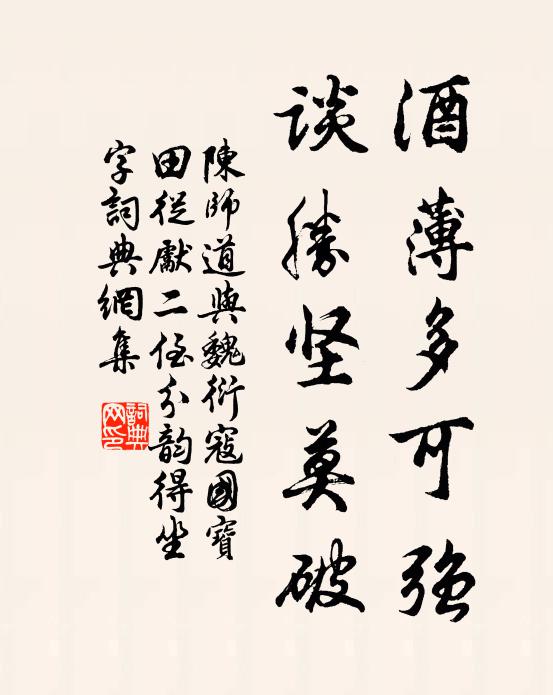 酒薄多可強
談勝堅莫破
陳師道與魏衍寇國寶
田從獻二侄分韵得坐
字詞典網集
詞典网印